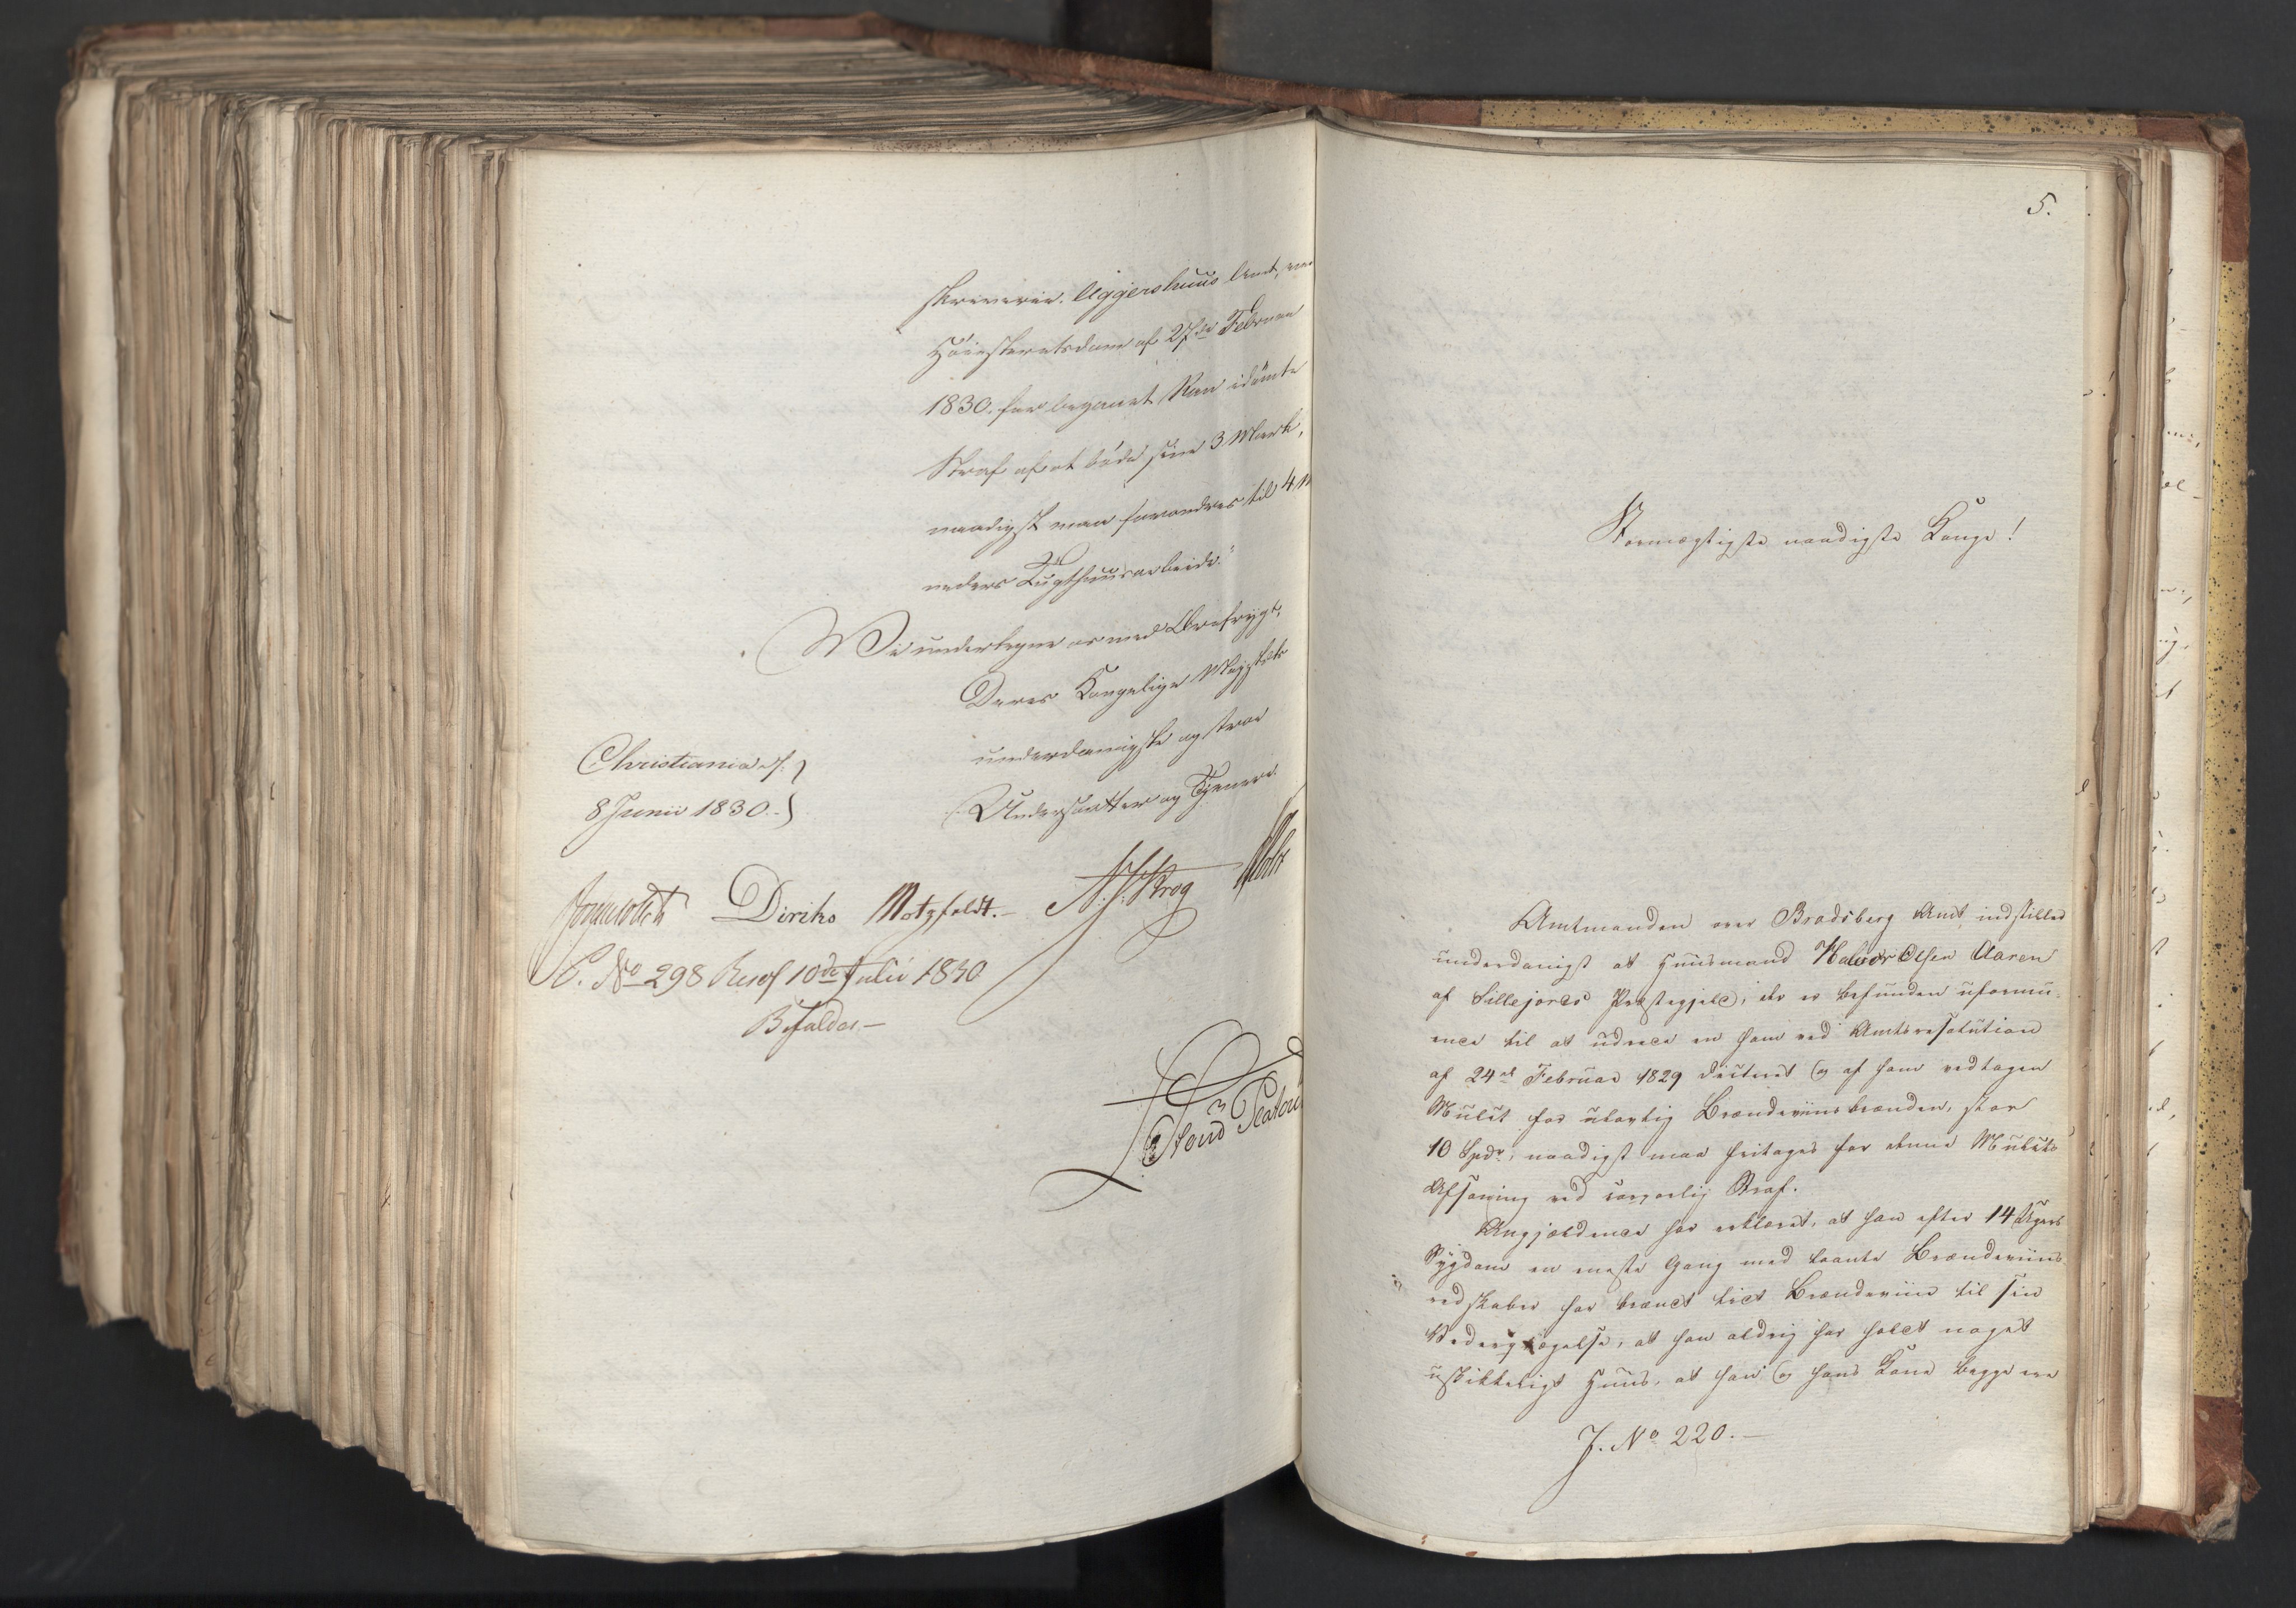 skriverie. Aggershuus Amt, ved
Høiesteretsdom af 27de Februar
1830. for begaaet Ran idømte
Straf af at bøde sine 3 Mark,
naadigst maa forandres til 4 M
neders Tugthuusarbeide."
Vi undertegne os med Ærefrygt,
Deres Kongelige Majestæts
underdanigste og troe
Undersaatter og Tjenere.
Christiania d.
8 Junii 1830.
Diriks Motzfeldt. Krog Holst
C. No 298 Resol 10de Julii 1830
Bifaldes.
5.
Stormægtigste naadigste Konge!
Amtmanden over Bradsberg Amt indstiller
underdanigst at Huusmand Halvor Olsen Aaren
af Sillejords Præstegjeld, der er befunden uformu-
ende til at udrede en ham ved Amtsresolution
af 24de Februar 1829 dicteret og af ham vedtagen
Mulct for ulovlig Brændeviinsbrænden, stor
10 Spdr, naadigst maa fritages for denne Mulcts
Afsoning ved corporlig Straf.
Angjældende har erklæret, at han efter 14 Ugers
Sygdom en eneste Gang med laante Brændeviins-
redskaber har brændt lidt Brændeviin til sin
Vederqvægelse, at han aldrig har holdt noget
uskikkeligt Huus, at han og hans Kone begge ere
J. No 220.